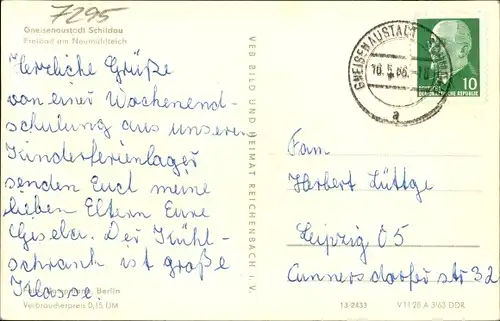 7295
Gneisenaustadt Schildau
Freibad am Neumühlteich
Herrliche Grüße
von einer Wochenend-
schulung aus unseren
Kinderferienlager
senden Euch meine
lieben Eltern Eure
Gisela. Der Kühl-
schrank ist große
Klasse.
Berlin
Verbraucherpreis 0,15 DM
VEB BILD UND HEIMAT REICHENBACH i. V.
GNEISENAUSTADT SCHILDAU
10.5.66.-10
a
10
DEUTSCHE DEMOKRATISCHE REPUBLIK
Fam
Herbert Lüttge
Leipzig O5
Cunnersdorfer str 32
13/2433 V 11 28 A 3/63 DDR